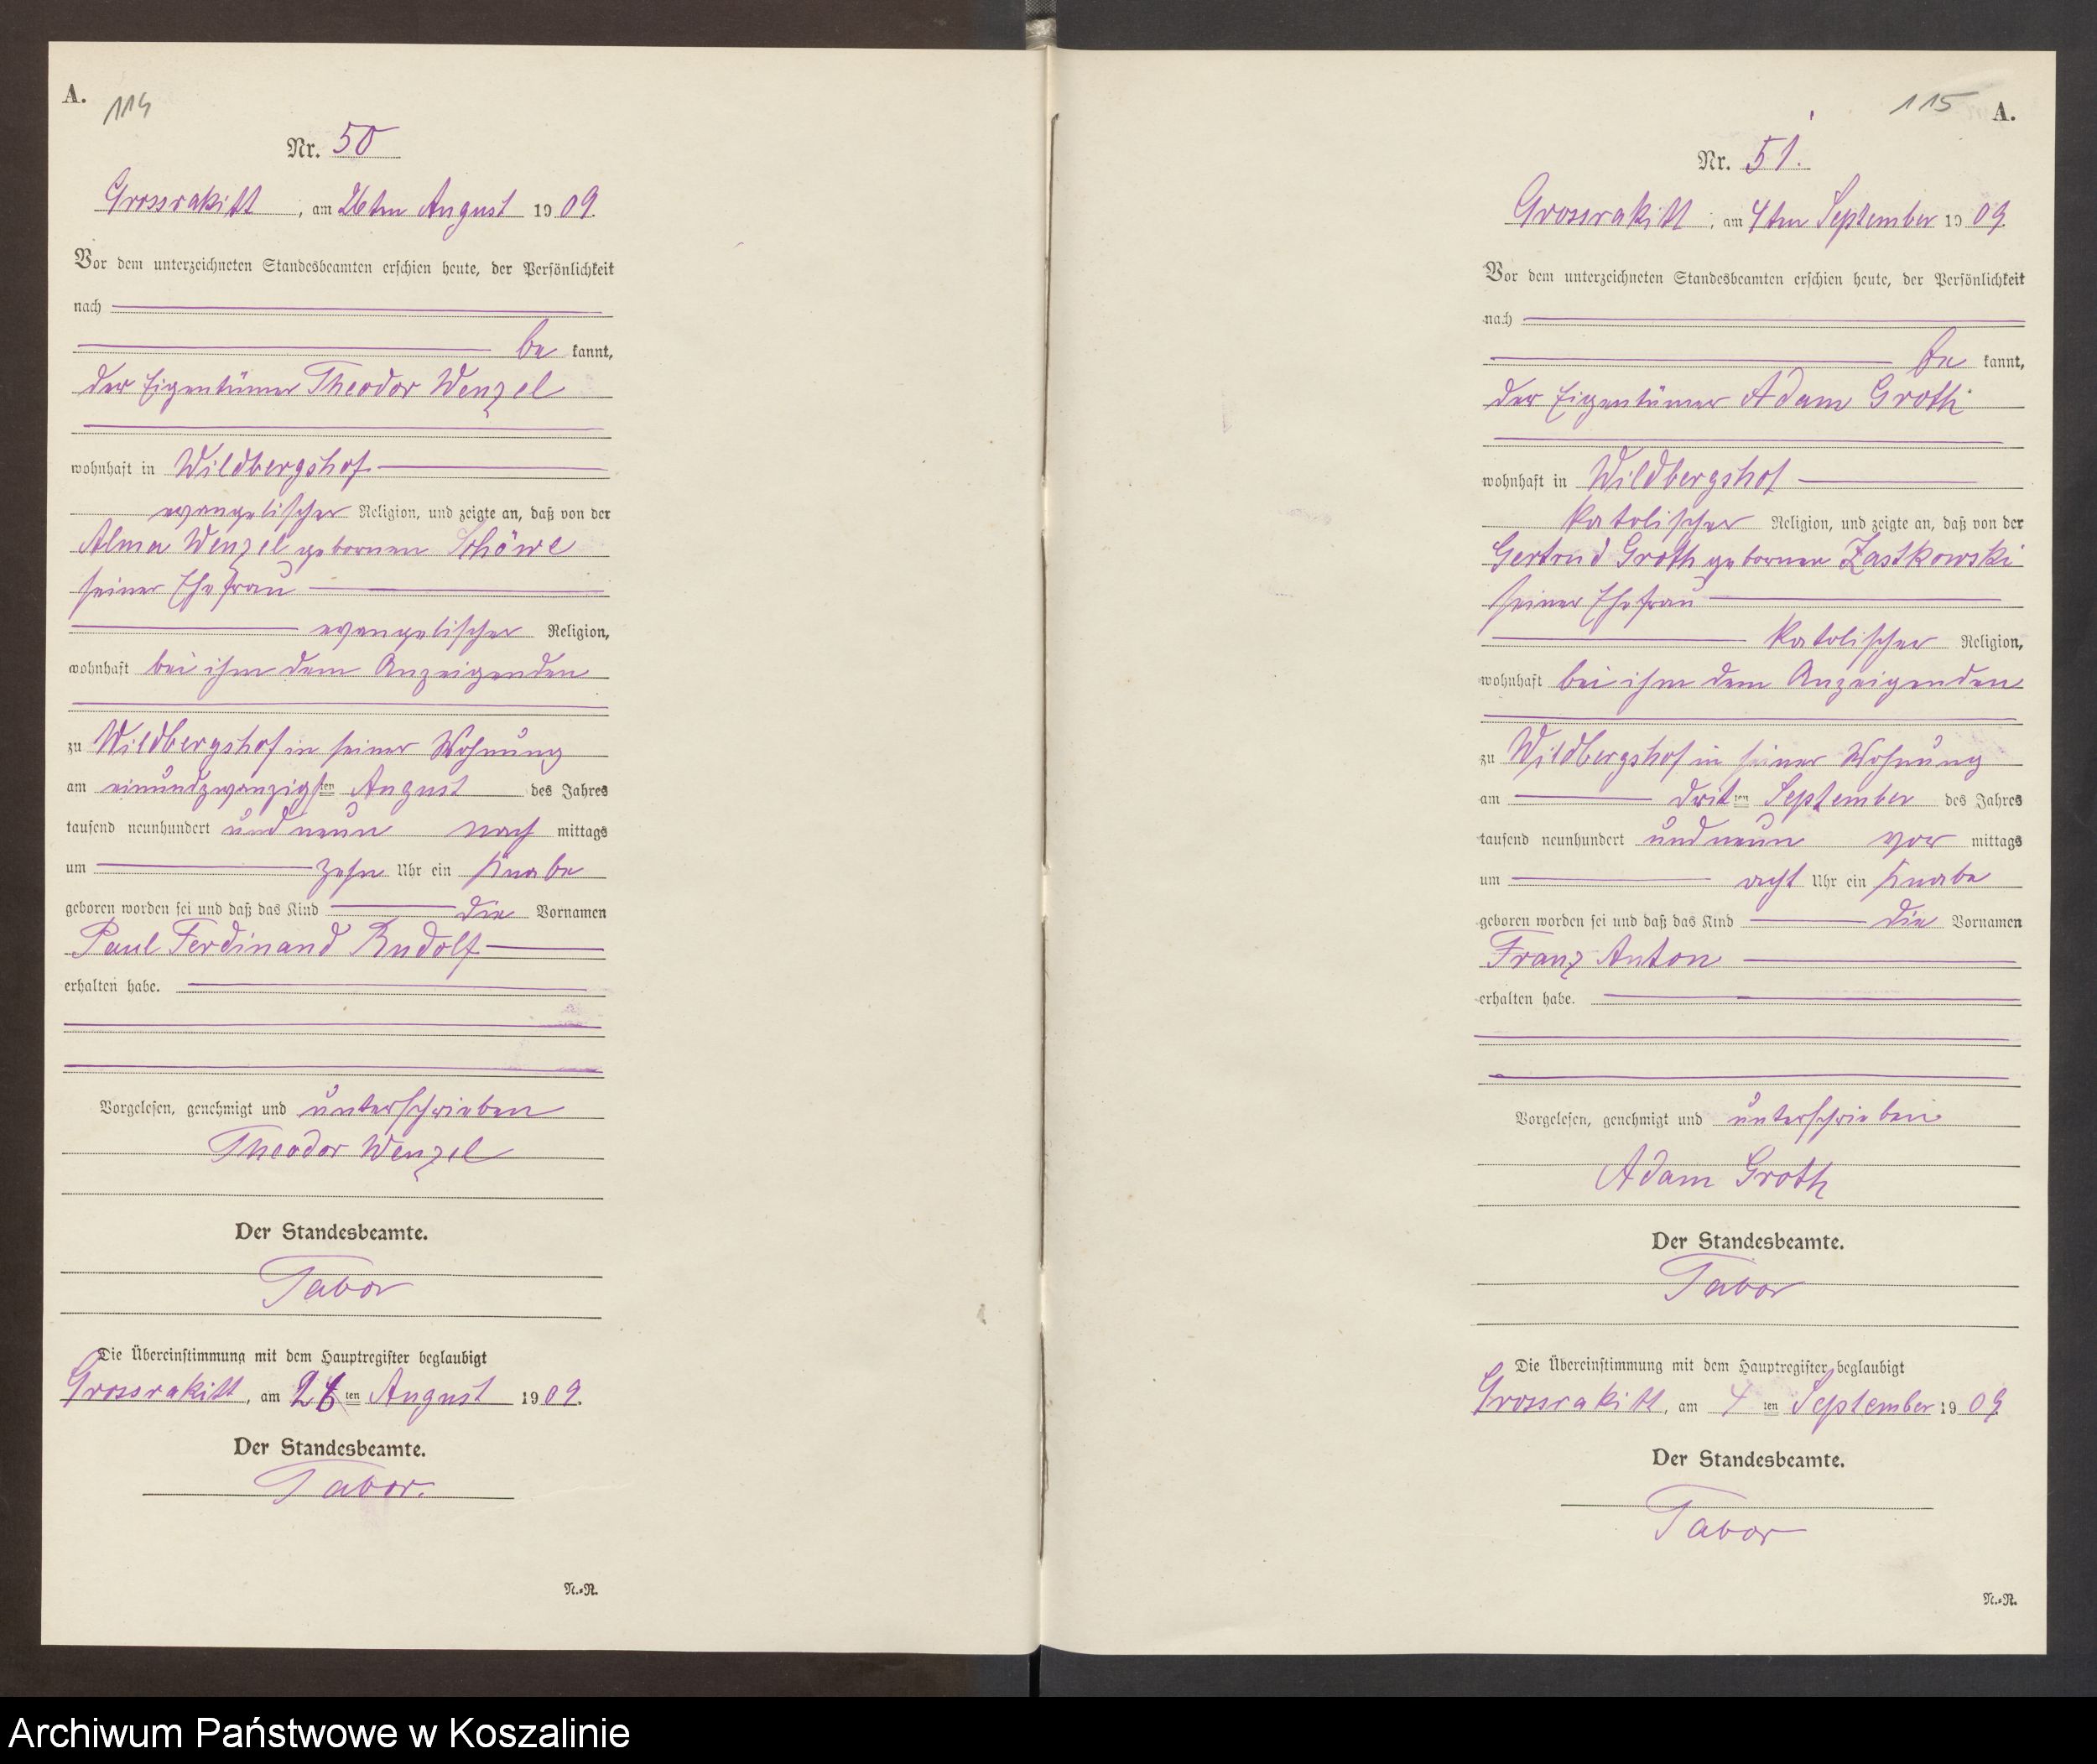 A.
114
Nr. 50
Grossrakitt, am 26ten August 1909.
Vor dem unterzeichneten Standesbeamten erschien heute, der Persönlichkeit
nach
be kannt,
der Eigentümer Theodor Wenzel
wohnhaft in Wildbergshof
evangelischer Religion, und zeigte an, daß von der
Alma Wenzel gebornen Schöwe
seiner Ehefrau
evangelischer Religion,
wohnhaft bei ihm dem Anzeigenden
zu Wildbergshof in seiner Wohnung
am einundzwanzigsten August des Jahres
tausend neunhundert und neun nach mittags
um zehn Uhr ein Knabe
geboren worden sei und daß das Kind die Vornamen
Paul Ferdinand Rudolf
erhalten habe.
Vorgelesen, genehmigt und unterschrieben
Theodor Wenzel
Der Standesbeamte.
Tabor
Die Übereinstimmung mit dem Hauptregister beglaubigt
Grossrakitt, am 26ten August 1909.
Der Standesbeamte.
Tabor.
N.=R.
115
A.
Nr. 51.
Grossrakitt, am 4ten September 1909.
Vor dem unterzeichneten Standesbeamten erschien heute, der Persönlichkeit
nach
be kannt,
der Eigentümer Adam Groth
wohnhaft in Wildbergshof
katolischer Religion, und zeigte an, daß von der
Gertrud Groth geborner Zastkowski
seiner Ehefrau
katolischer Religion,
wohnhaft bei ihm dem Anzeigenden
zu Wildbergshof in seiner Wohnung
am dritten September des Jahres
tausend neunhundert und neun vor mittags
um acht Uhr ein Knabe
geboren worden sei und daß das Kind die Vornamen
Franz Anton
erhalten habe.
Vorgelesen, genehmigt und unterschrieben
Adam Groth
Der Standesbeamte.
Tabor
Die Übereinstimmung mit dem Hauptregister beglaubigt
Grossrakitt, am 4ten September 1909.
Der Standesbeamte.
Tabor
N.=R.
Archiwum Państwowe w Koszalinie